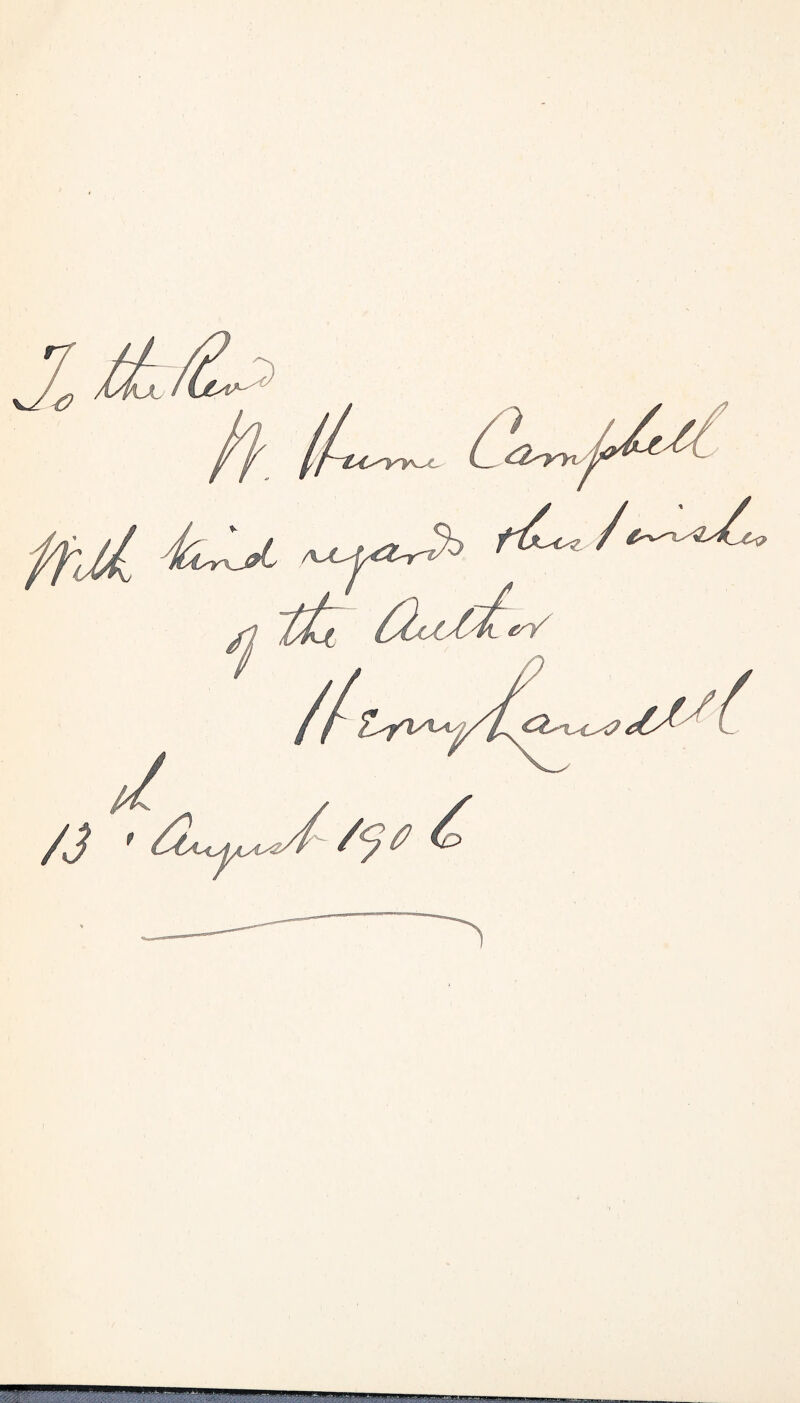 To the Revd
W. Hume Campbell
With kind regards & best wishes
of the Author
Henry Lansdell
13th August 1906